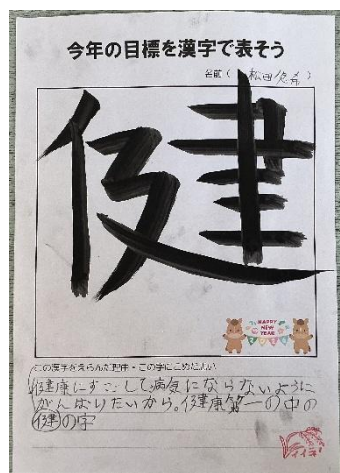 今年の目標を漢字で表そう
名前（松田悠希）
健
HAPPY
NEW
YEAR
この漢字をえらんだ理由・この字にこめたねがい
健康にすごして病気にならないように
がんばりたいから。健康第一の中の
健の字
イイネ!